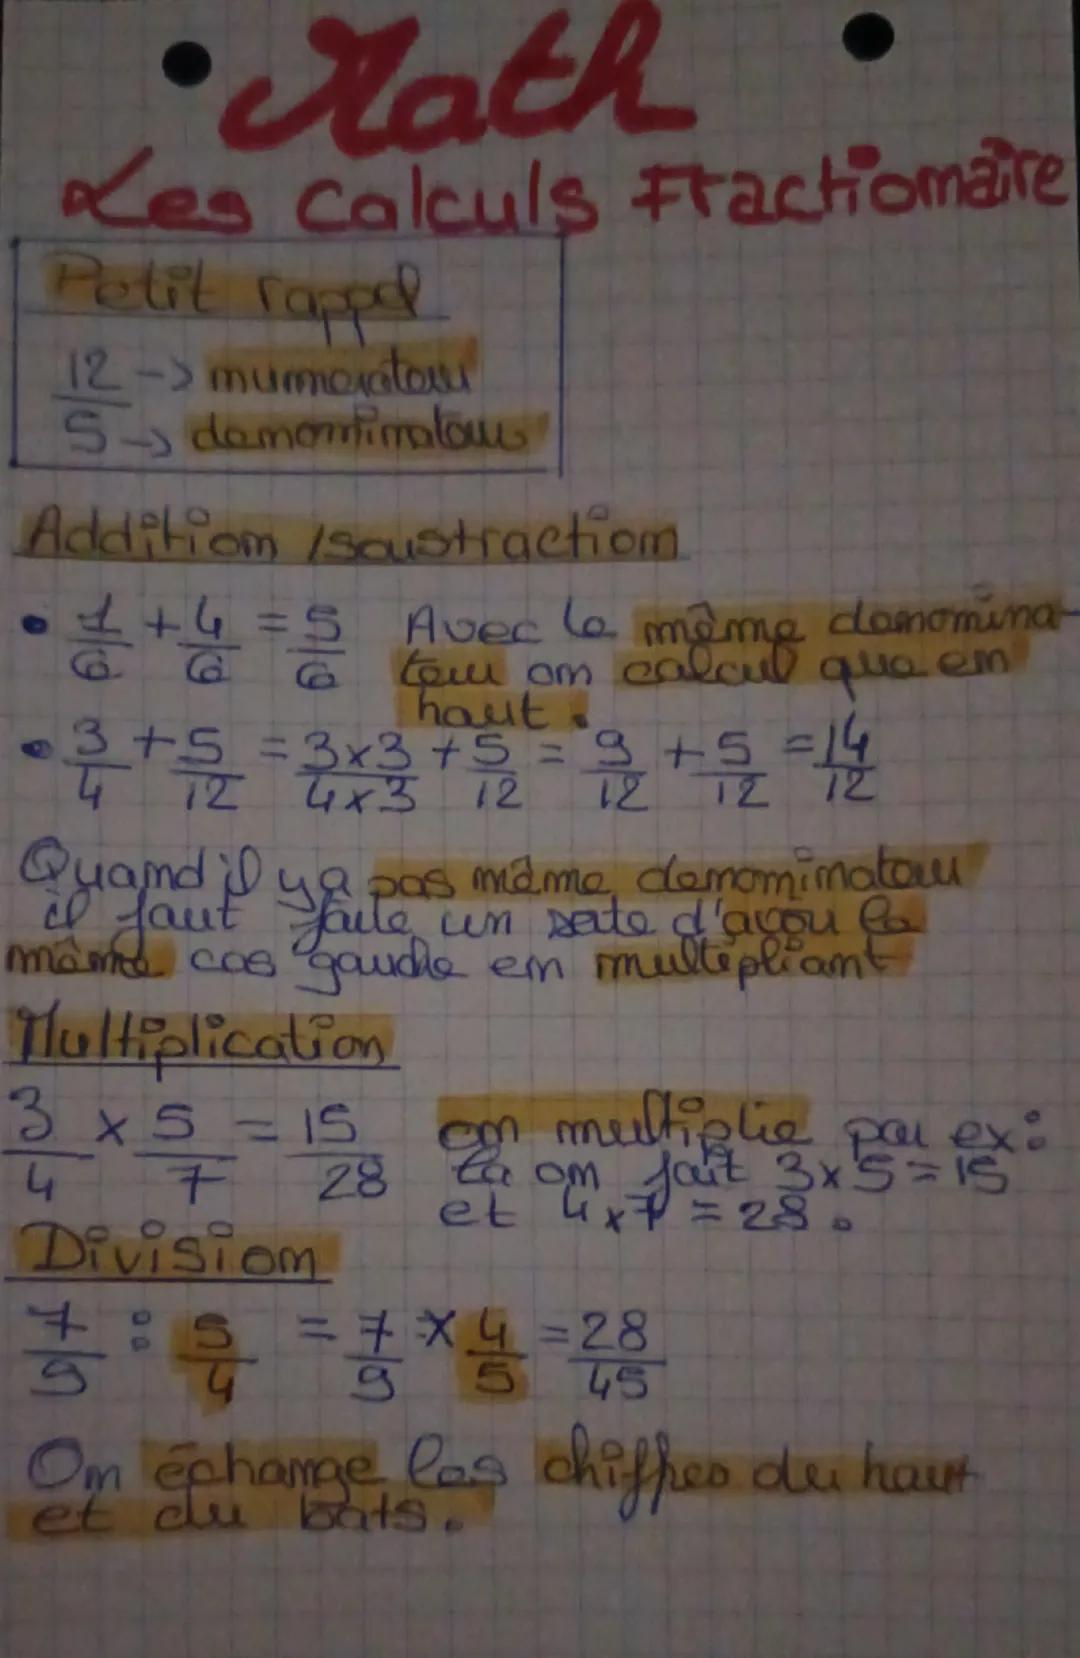 Math
Les calculs Fractionnaire
Petit rappel
12 -> numerateur
5 -> denominateur
Addition / soustraction
• 1/6 + 4/6 = 5/6 Avec le même denomina-
teur on calcul que en
haut.
• 3/4 + 5/12 = 3x3/4x3 + 5/12 = 9/12 + 5/12 = 14/12
Quand il y a pas même denominateur
il faut faire un sorte d'avoir le
même cos gauche en multipliant
Multiplication
3/4 x 5/7 = 15/28 on multiplie par ex:
là on fait 3x5=15
et 4x7=28.
Division
7/9 : 5/4 = 7/9 x 4/5 = 28/45
On échange les chiffres du haut
et du bats.